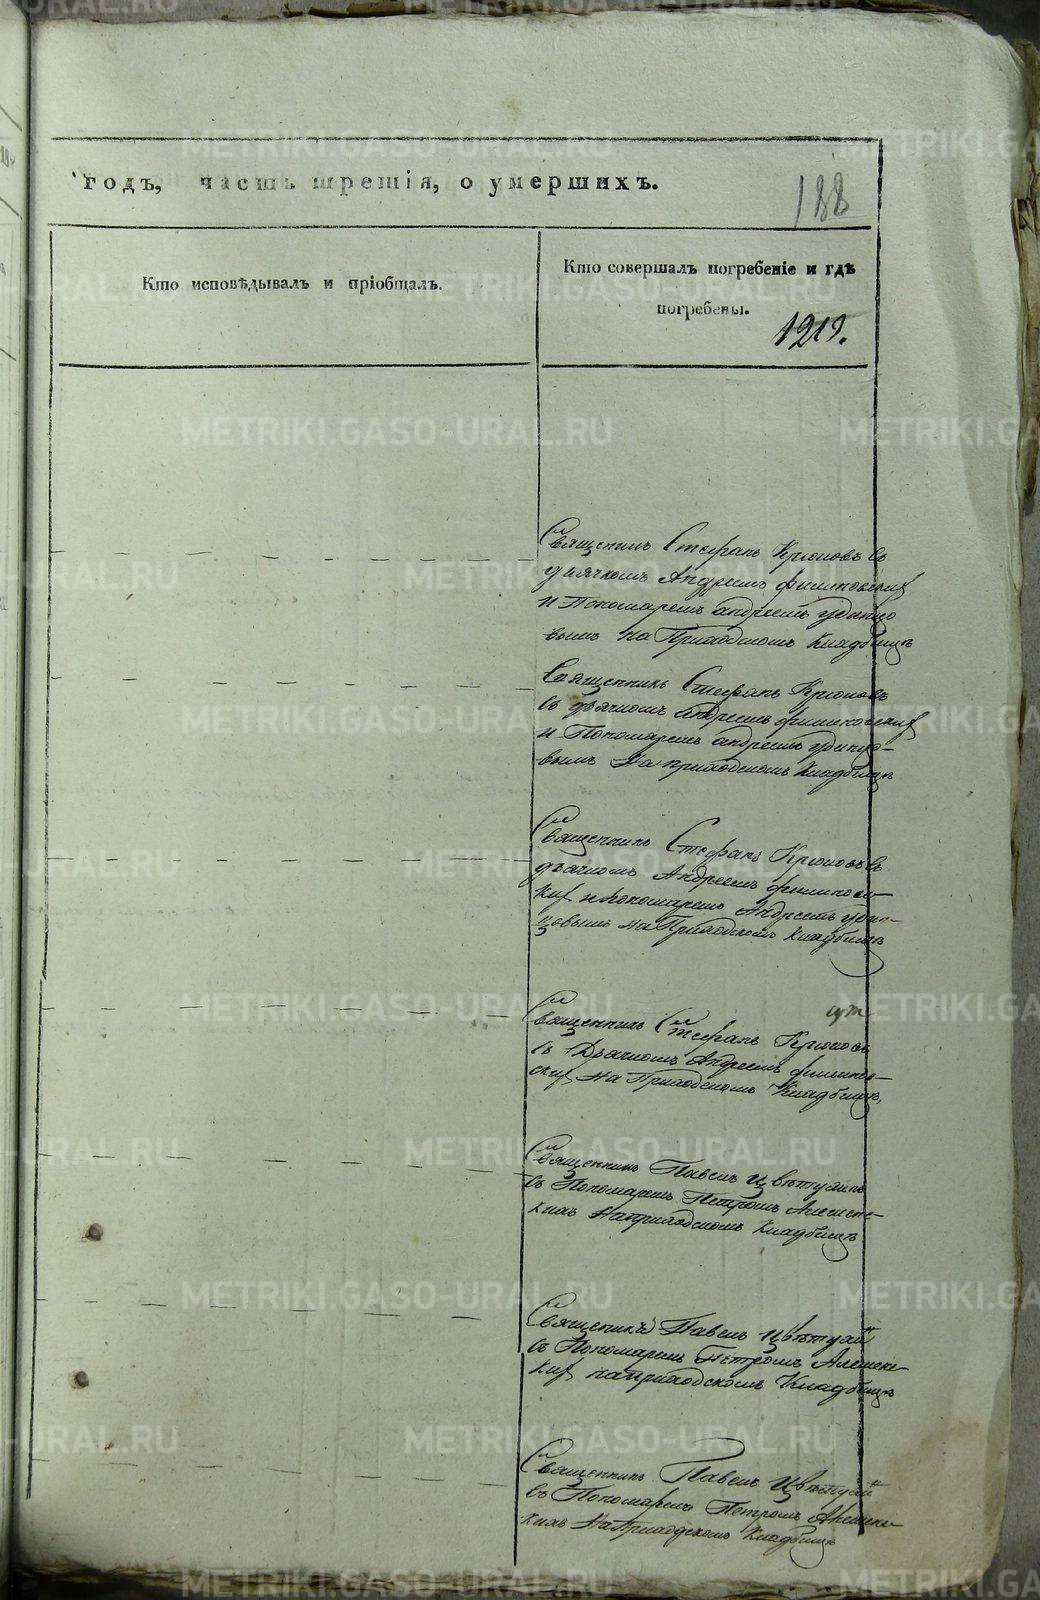 годъ, часть третія, о умершихъ.
188
Кто исповѣдывалъ и пріобщалъ.
Кто совершалъ погребеніе и гдѣ
погребены.
1219.
Священникъ Стефанъ Крюковъ съ
дьячкомъ Андреемъ
и Пономаремъ андреемъ удинцо
вымъ на Приходскомъ Кладбищѣ
Священникъ Стефанъ Крюковъ
съ дьячкомъ андреемъ
и Пономаремъ андреемъ удинцо-
вымъ На приходскомъ Кладбищѣ
Священникъ Стефанъ Крюковъ съ
дьячкомъ Андреемъ
и пономаремъ Андреемъ удин-
цовымъ на Приходскомъ Кладбищѣ
Священникъ Стефанъ Крюковъ
съ Дьячкомъ Андреемъ
на Приходскомъ Кладбищѣ,
Священникъ Павелъ
съ Пономаремъ Петромъ
На приходскомъ Кладбищѣ
Священникъ Павелъ
съ Пономаремъ Петромъ
на приходскомъ Кладбищѣ
Священникъ Павелъ
съ Пономаремъ Петромъ
На Приходскомъ Кладбищѣ
METRIKI.GASO-URAL.RU